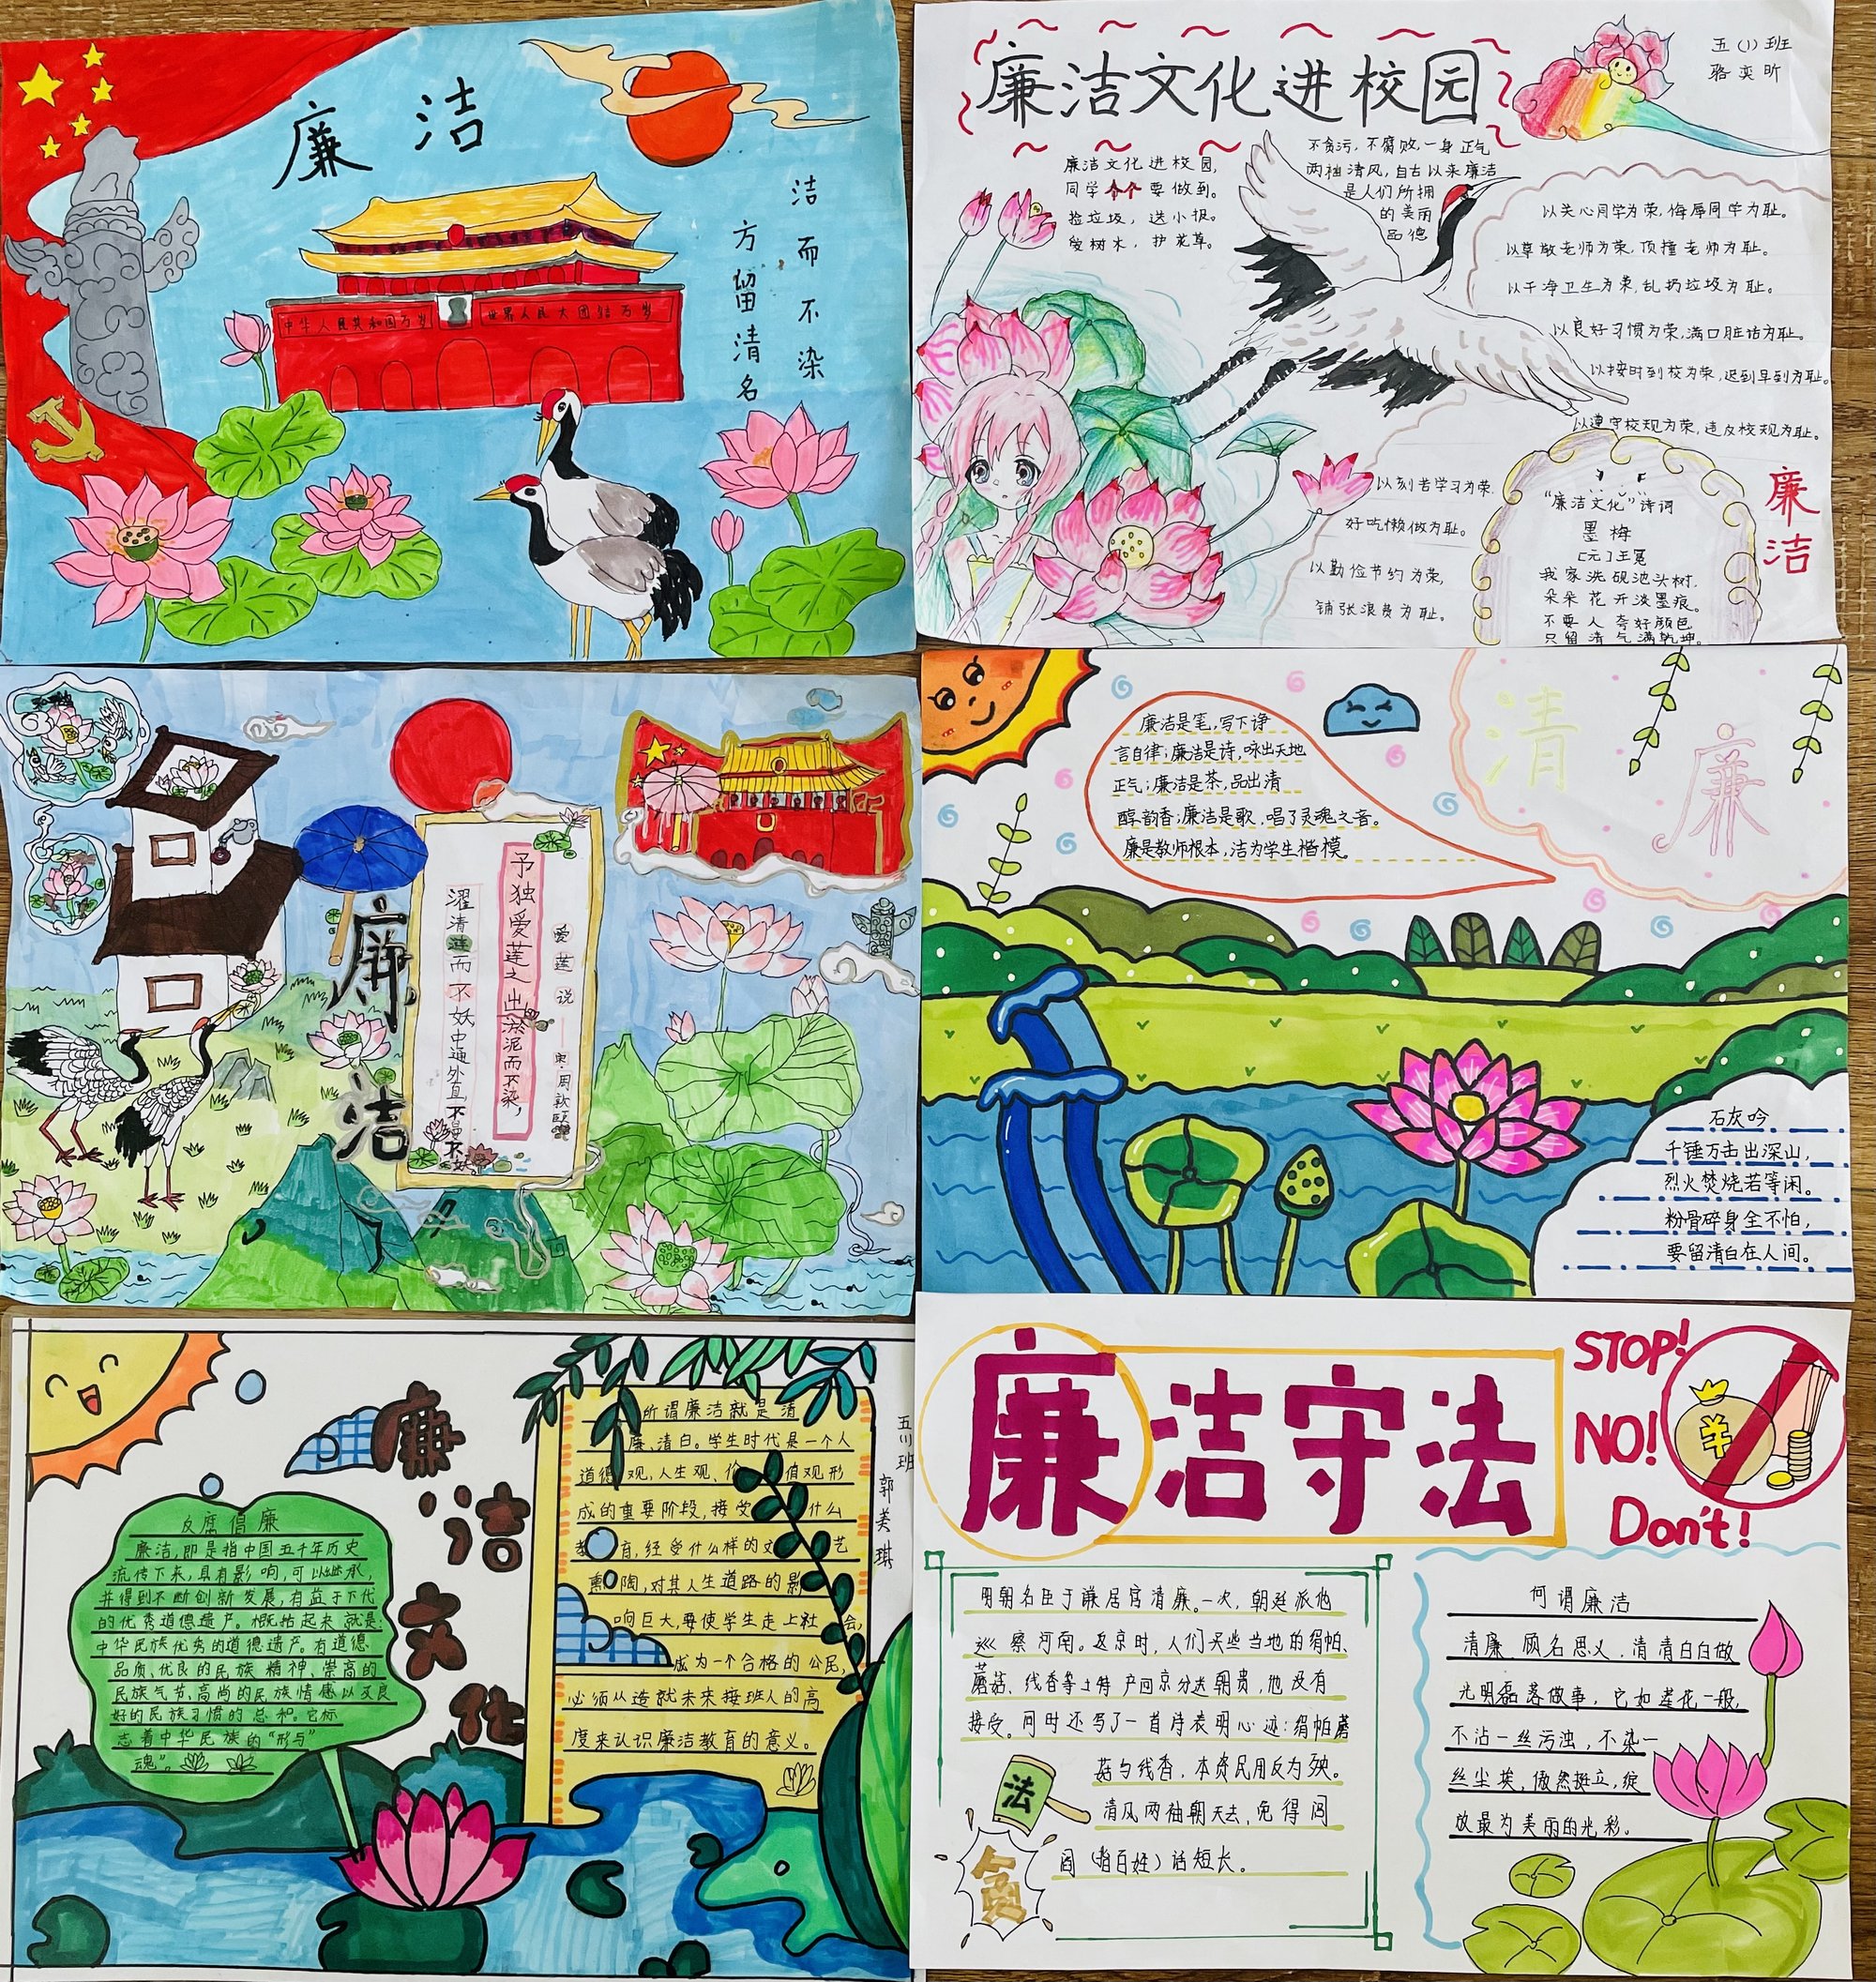 廉洁
中华人民共和国万岁
世界人民大团结万岁
洁而不染
方留清名
廉洁文化进校园
五(1)班
骆奕昕
廉洁文化进校园,
同学个个要做到。
捡垃圾,送小报。
爱树木,护花草。
不贪污,不腐败,一身正气
两袖清风,自古以来廉洁
是人们所拥
的美丽
品德
以关心同学为荣,侮辱同学为耻。
以尊敬老师为荣,顶撞老师为耻。
以干净卫生为荣,乱扔垃圾为耻。
以良好习惯为荣,满口脏话为耻。
以按时到校为荣,迟到早到为耻。
以遵守校规为荣,违反校规为耻。
以刻苦学习为荣
好吃懒做为耻。
以勤俭节约为荣,
铺张浪费为耻。
"廉洁文化"诗词
墨梅
[元]王冕
我家洗砚池头树,
朵朵花开淡墨痕。
不要人夸好颜色
只留清气满乾坤。
廉洁
廉洁
爱莲说
宋·周敦颐
予独爱莲之出淤泥而不染,
濯清涟而不妖中通外直,不蔓不
廉洁是笔,写下诤
言自律;廉洁是诗,咏出天地
正气;廉洁是茶,品出清
醇韵香;廉洁是歌,唱了灵魂之音。
廉是教师根本,洁为学生楷模。
清廉
石灰吟
千锤万击出深山,
烈火焚烧若等闲。
粉骨碎身全不怕,
要留清白在人间。
廉洁文化
反腐倡廉
廉洁,即是指中国五千年历史
流传下来,具有影响,可以继承,
并得到不断创新发展,有益于下代
的优秀道德遗产。概括起来就是:
中华民族优秀的道德遗产。有道德
品质、优良的民族精神、崇高的
民族气节、高尚的民族情感以及良
好的民族习惯的总和。它标
志着中华民族的"形与"
魂"。
所谓廉洁就是清
廉、清白。学生时代是一个人
道德观,人生观、价值观形
成的重要阶段,接受什么
教育,经受什么样的文艺
熏陶,对其人生道路的影
响巨大,要使学生走上社会,
成为一个合格的公民,
必须从造就未来接班人的高
度来认识廉洁教育的意义。
五(1)班
郭美琪
廉洁守法
STOP!
NO!
Don't!
¥
明朝名臣于谦居官清廉。一次,朝廷派他
巡察河南。返京时,人们买些当地的绢帕、
蘑菇、线香等土特产回京分送朝贵,他没有
接受。同时还写了一首诗表明心迹:绢帕蘑
菇与线香,本资民用反为殃。
清风两袖朝天去,免得闾
阎(指百姓)话短长。
法
贪
何谓廉洁
清廉、顾名思义,清清白白做
光明磊落做事,它如莲花一般,
不沾一丝污浊,不染一
丝尘埃,傲然挺立,绽
放最为美丽的光彩。